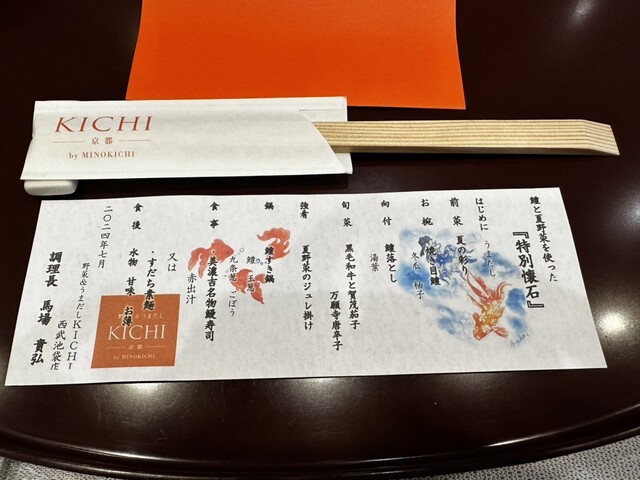 KICHI
京都
by MINOKICHI
鱧と夏野菜を使った
『特別懐石』
はじめに うまだし
前菜 夏の彫り
お椀 焼目鱧
冬瓜 柚子
向付 鱧落とし
湯葉
旬菜 黒毛和牛と賀茂茄子
万願寺唐辛子
強肴 夏野菜のジュレ掛け
鍋 鱧すき鍋
鱧 玉葱
九条葱 ごぼう
食事 美濃吉名物鰻寿司
赤出汁
又は
・すだち素麺
食後 水物 甘味 お薄
二〇二四年七月
野菜&うまだしKICHI
西武池袋店
調理長 馬場 貴弘
KICHI
京都
by MINOKICHI